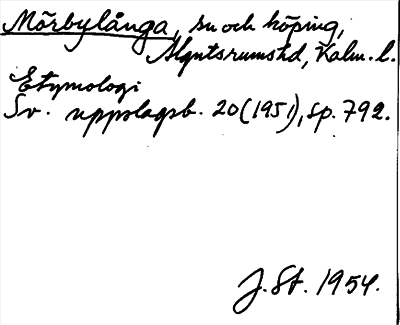 Mörbylånga, sn och köping,
Algutsrums hd, Kalm. l.
Etymologi
Sv. uppslagsb. 20 (1951), sp. 792.
J. St. 1954.